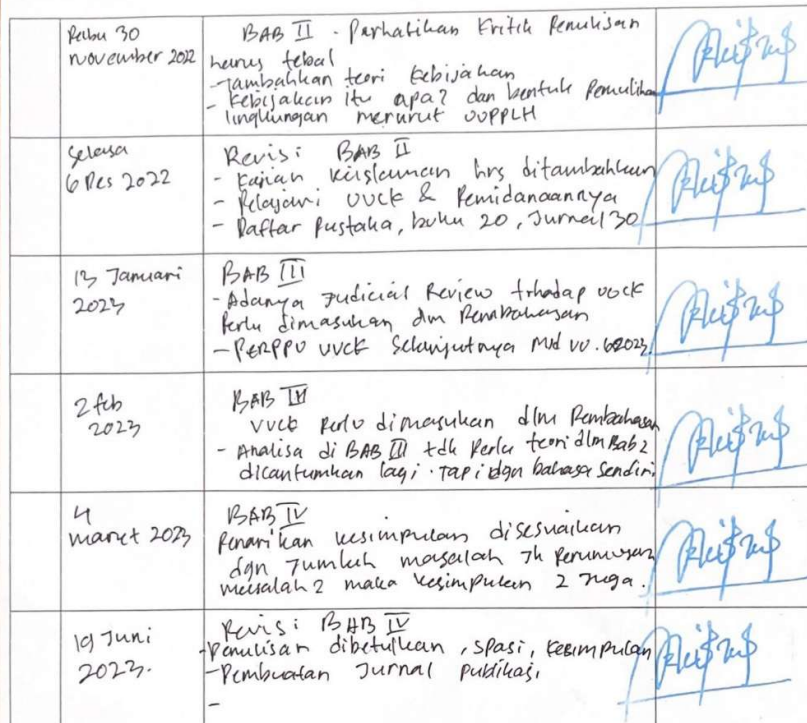 Rabu 30
november 2022
BAB II - Perhatikan Kritik Penulisan
harus tebal
- Tambahkan teori Kebijakan
- Kebijakan itu apa? dan bentuk Pemulihan
lingkungan menurut UUPPLH
Selasa
6 Des 2022
Revisi BAB II
- Kajian Keislaman hrs ditambahkan
- Pelajari UUCK & Pemidanaannya
- Daftar Pustaka, buku 20, Jurnal 30
13 Januari
2023
BAB III
- Adanya Judicial Review trhadap UUCK
Perlu dimasukan dlm Pembahasan
- PERPPU UUCK Selanjutnya Mjd UU. 6 2023.
2 feb
2023
BAB III
UUCK Perlu dimasukan dlm Pembahasan
- Analisa di BAB III tdk Perlu teori dlm Bab 2
dicantumkan lagi. Tapi dgn bahasa sendiri.
4
maret 2023
BAB IV
Penarikan kesimpulan disesuaikan
dgn Jumlah masalah Jk Perumusan
masalah 2 maka kesimpulan 2 Juga.
19 Juni
2023.
Revisi BAB IV
- Penulisan dibetulkan, spasi, kesimpulan
- Pembuatan Jurnal publikasi
-